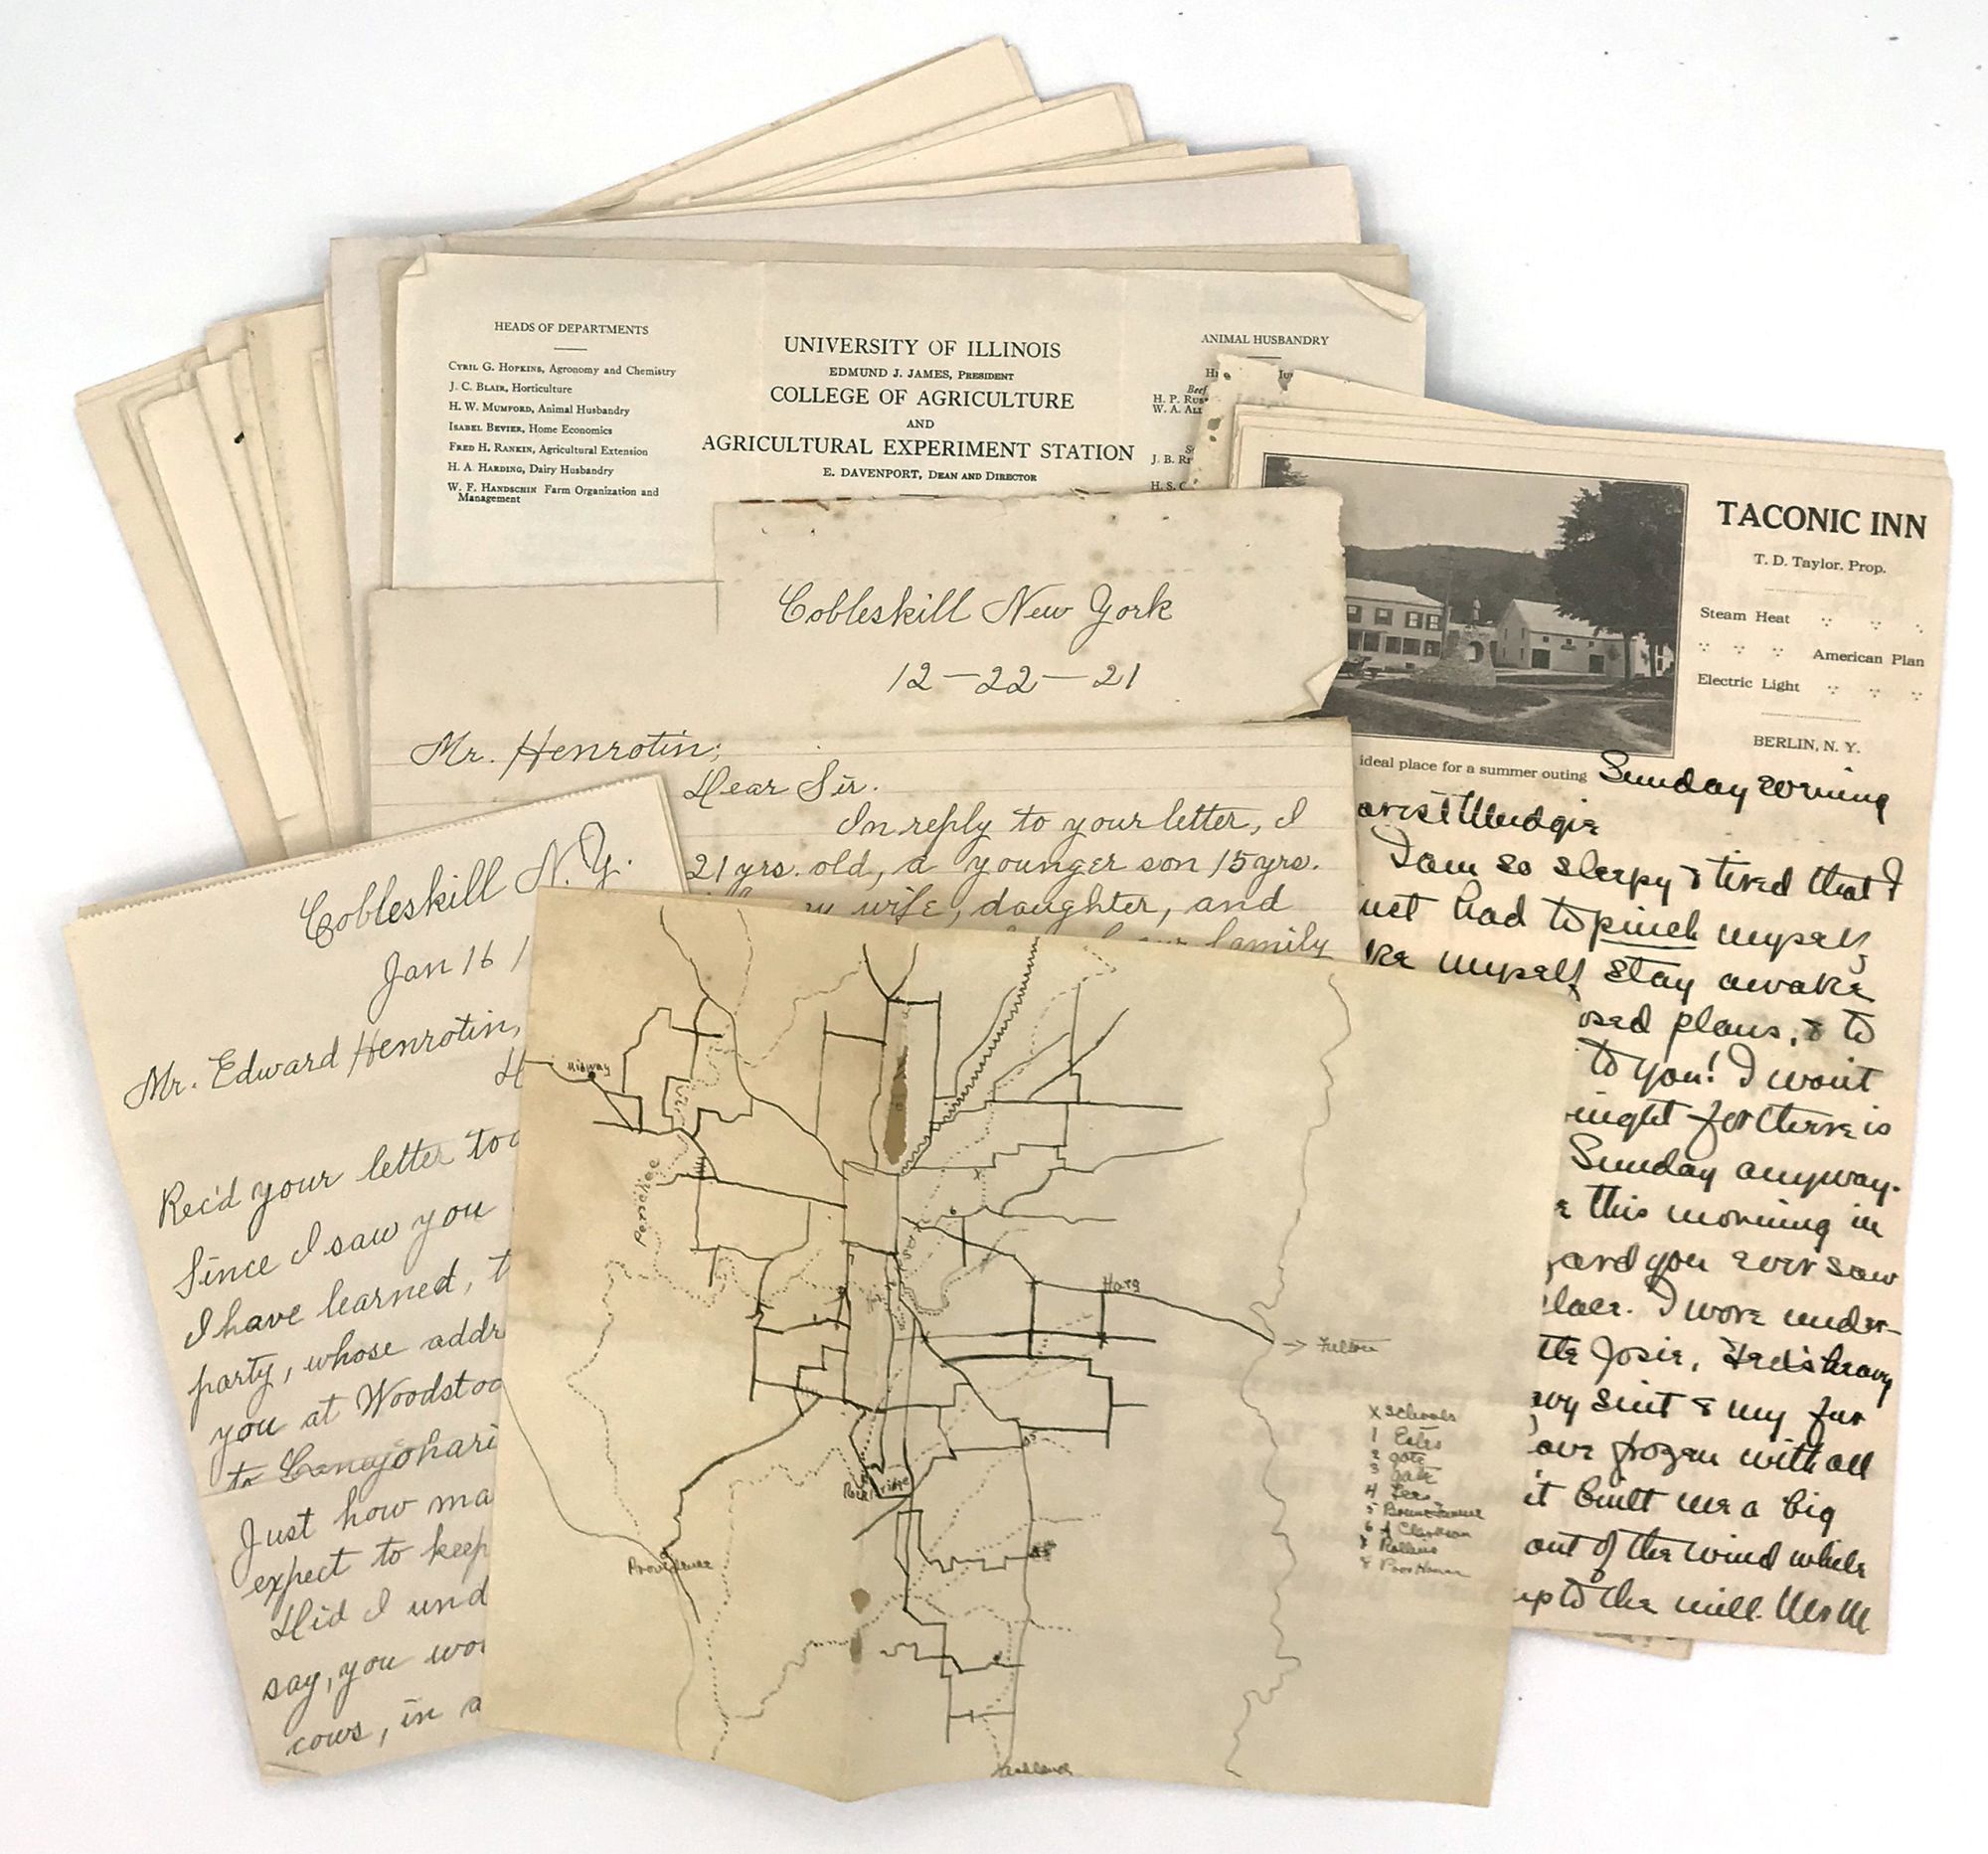 HEADS OF DEPARTMENTS
CYRIL G. HOPKINS, Agronomy and Chemistry
J. C. BLAIR, Horticulture
H. W. MUMFORD, Animal Husbandry
ISABEL BEVIER, Home Economics
FRED H. RANKIN, Agricultural Extension
H. A. HARDING, Dairy Husbandry
W. F. HANDSCHIN Farm Organization and
Management
UNIVERSITY OF ILLINOIS
EDMUND J. JAMES, PRESIDENT
COLLEGE OF AGRICULTURE
AND
AGRICULTURAL EXPERIMENT STATION
E. DAVENPORT, DEAN AND DIRECTOR
ANIMAL HUSBANDRY
Beef
H. P. Rus
W. A. ALL
J. B. R
H. S. C
TACONIC INN
T. D. Taylor. Prop.
Steam Heat
American Plan
Electric Light
BERLIN, N. Y.
ideal place for a summer outing
Sunday evening
I am so sleepy & tired that I
had to pinch myself
myself stay awake
plans, & to
to you! I won't
for there is
Sunday anyway.
this morning in
and you ever saw
I wore under-
Josie, Fred's heavy
suit & my fur
frozen with all
built me a big
out of the wind while
up to the mill.
Cobleskill New York
12-22-21
Mr. Henrotin;
Dear Sir.
In reply to your letter, I
21 yrs. old, a younger son 15 yrs.
wife, daughter, and
our family
Cobleskill N.Y.
Jan 16 1
Mr. Edward Henrotin,
Rec'd your letter too
Since I saw you
I have learned, t
party, whose addr
you at Woodstoc
to Canajohari
Just how ma
expect to keep
Did I und
say, you wou
cows, in a
Midway
Perchee
6
Harg
Fulton
Rockbridge
Providence
Ashland
X Schools
1 Estes
2 Gate
3
4
5
6 A Clarkson
7 Rollins
8 Poor House